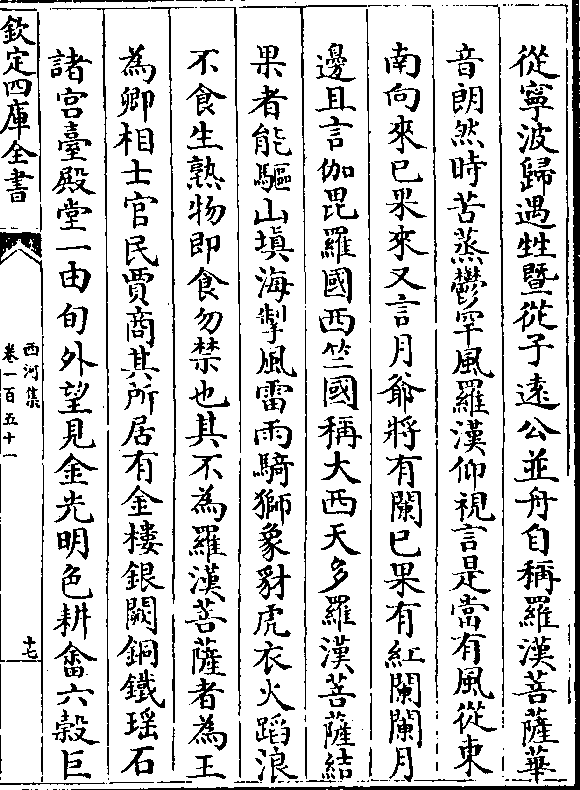 從寧波歸遇甡暨從子遠公並舟自稱羅漢菩薩華
音朗然時苦蒸鬱罕風羅漢仰視言是當有風從東
南向來已果來又言月爺將有闌已果有紅闌闌月
邊且言伽毘羅國西竺國稱大西天多羅漢菩薩結
果者能驅山填海掣風雷雨騎獅象豺虎衣火蹈浪
不食生熟物即食勿禁也其不為羅漢菩薩者為王
為卿相士官民賈商其所居有金樓銀闕銅鐵瑶石
諸宫臺殿堂一由旬外望見金光明色耕畬六穀巨
欽定四庫全書
西河集
卷一百五十一
十七